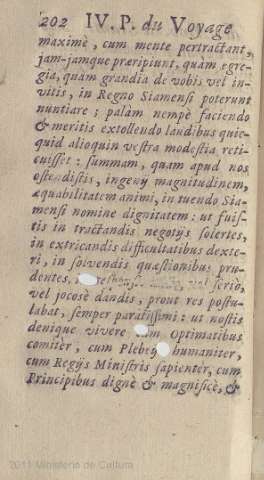 202 IV. P. du Voyage
maximè, cum mente pertractant,
jam-jamque præripiunt, quàm egre-
gia, quàm grandia de vobis vel in-
vitis, in Regno Siamensi poterunt
nuntiare; palàm nempè faciendo
& meritis extollendo laudibus quic-
quid alioquin vestra modestia reti-
cuisset: summam, quam apud nos
ostendistis, ingenij magnitudinem,
æquabilitatem animi, in tuendo Sia-
mensi nomine dignitatem: ut fuis-
tis in tractandis negotijs solertes,
in extricandis difficultatibus dexte-
ri, in solvendis quæstionibus pru-
dentes, vel seriò,
vel jocosè dandis, prout res postu-
labat, semper paratissimi: ut nostis
denique vivere cum Optimatibus
comiter, cum Plebeijs humaniter,
cum Regijs Ministris sapienter, cum
Principibus dignè & magnificè, &
2011 Ministerio de Cultura